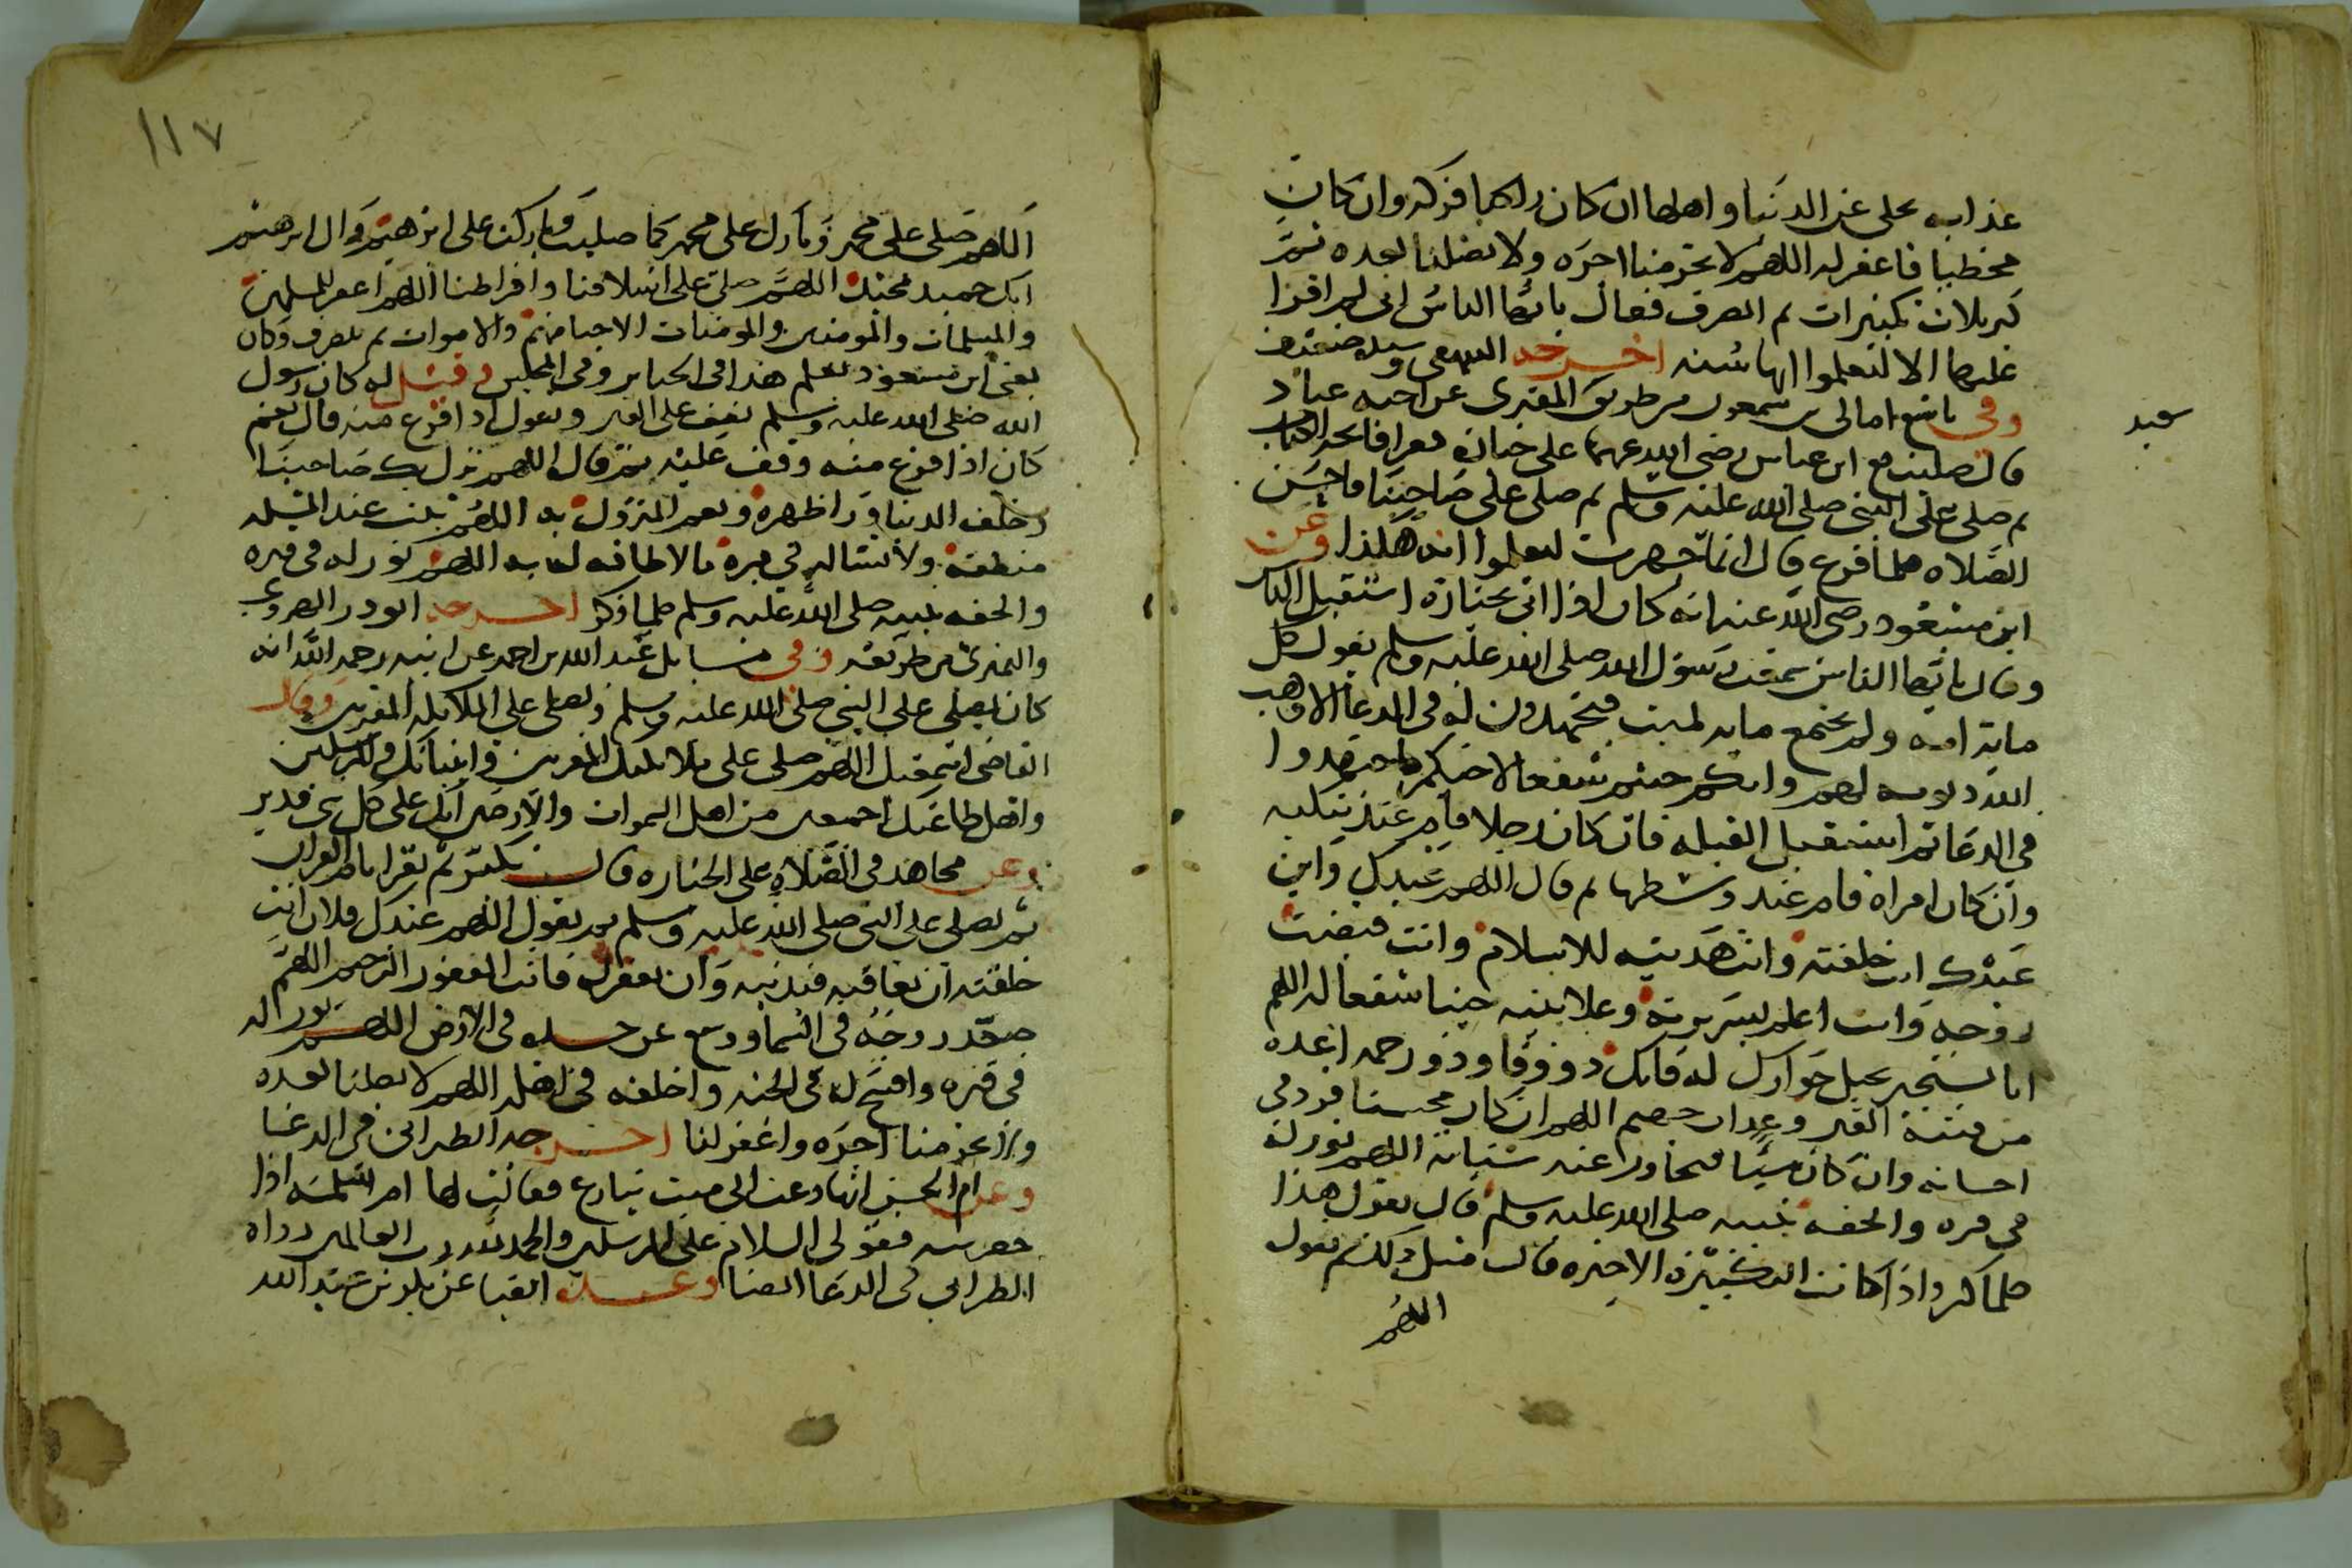 عذابه تخلى عن الدنيا واهلها ان كان زاكيا فزكه وان كان
مخطيا فاغفر له اللهم لا تحرمنا اجره ولا تضلنا بعده ثم
كبر ثلاث تكبيرات ثم انصرف فقال يا ايها الناس اني لم اقرا
عليها الا لتعلموا انها سنة اخرجه البيهقي وسنده ضعيف
وفي تاسع امالي بن سمعون من طريق المقبري عن اخيه عباد
سعيد
قال صليت مع ابن عباس رضي الله عنهما على جنازة فقرا فاتحة الكتاب
ثم صلى على النبي صلى الله عليه وسلم ثم صلى على صاحبنا فاحسن
الصلاه فلما فرغ قال انما جهرت لتعلموا انه هكذا وعن
ابن مسعود رضي الله عنه انه كان اذا اتى بجنازة استقبل الناس
وقال يا ايها الناس سمعت رسول الله صلى الله عليه وسلم يقول كل
ماية امة ولم يجتمع ماية لميت فيجتهدون له في الدعا الا وهب
الله ذنوبه لهم وانكم جيتم شفعا لاخيكم فاجتهدوا
في الدعا ثم استقبل القبله فان كان رجلا قام عند منكبه
وان كان امراة قام عند وسطها ثم قال اللهم عبدك وابن
عبدك انت خلقته وانت هديته للاسلام وانت قبضت
روحه وانت اعلم بسريرته وعلانيته جينا شفعا له اللهم
انا نستجير بحبل جوارك له فانك ذو وفا وذو رحمه اعذه
من فتنة القبر وعذاب جهنم اللهم ان كان محسنا فزد في
احسانه وان كان مسيا فتجاوز عنه سيئاته اللهم نور له
في قبره والحقه بنبيه صلى الله عليه وسلم قال يقول هذا
كلما كبر واذا كانت التكبيرة الاخيره قال مثل ذلك ثم يقول
اللهم
١١٧
اللهم صلى على محمد وبارك على محمد كما صليت وباركت على ابرهيم وال ابرهيم
انك حميد مجيد اللهم صلى على اسلافنا وافراطنا اللهم اغفر للمسلمين
والمسلمات والمومنين والمومنات الاحيا منهم والاموات ثم ينصرف وكان
يعني ابن مسعود يعلم هذا في الجنايز وفي المجلس وقيل له كان رسول
الله صلى الله عليه وسلم يقف على القبر ويقول اذا فرغ منه قال نعم
كان اذا فرغ منه وقف عليه ثم قال اللهم نزل بك صاحبنا
وخلف الدنيا ورا ظهره ونعم المنزول به اللهم ثبت عند المسئله
منطقه ولا تبتله في قبره بما لا طاقه له به اللهم نور له في قبره
والحقه بنبيه صلى الله عليه وسلم كلما ذكر اخرجه ابو ذر الهروي
والنميري من طريقه وفي مسايل عبد الله بن احمد عن ابيه رحمه الله انه
كان يصلي على النبي صلى الله عليه وسلم ويصلي على الملايكه المقربين وقال
القاضي اسمعيل اللهم صلى على ملايكتك المقربين وانبيائك والمرسلين
واهل طاعتك اجمعين من اهل السموات والارضين انك على كل شي قدير
وعن مجاهد في الصلاه على الجنازه قال تكبر ثم تقرا بام القران
ثم تصلي على النبي صلى الله عليه وسلم ثم تقول اللهم عبدك فلان انت
خلقته ان تعاقبه فبذنبه وان تغفر له فانت الغفور الرحيم اللهم
صعد روحه في السما ووسع عن جسده في الارض اللهم نور له
في قبره وافسح له في الجنه واخلفه في اهله اللهم لا تضلنا بعده
ولا تحرمنا اجره واغفر لنا اخرجه الطبراني في الدعا
وعن ام الحسن انها دعت الى ميت ينازع فقالت لها ام سلمه اذا
حضرتيه فقولي السلام على المرسلين والحمد لله رب العالمين رواه
الطبراني في الدعا ايضا وعنده ايضا عن بكر بن عبد الله